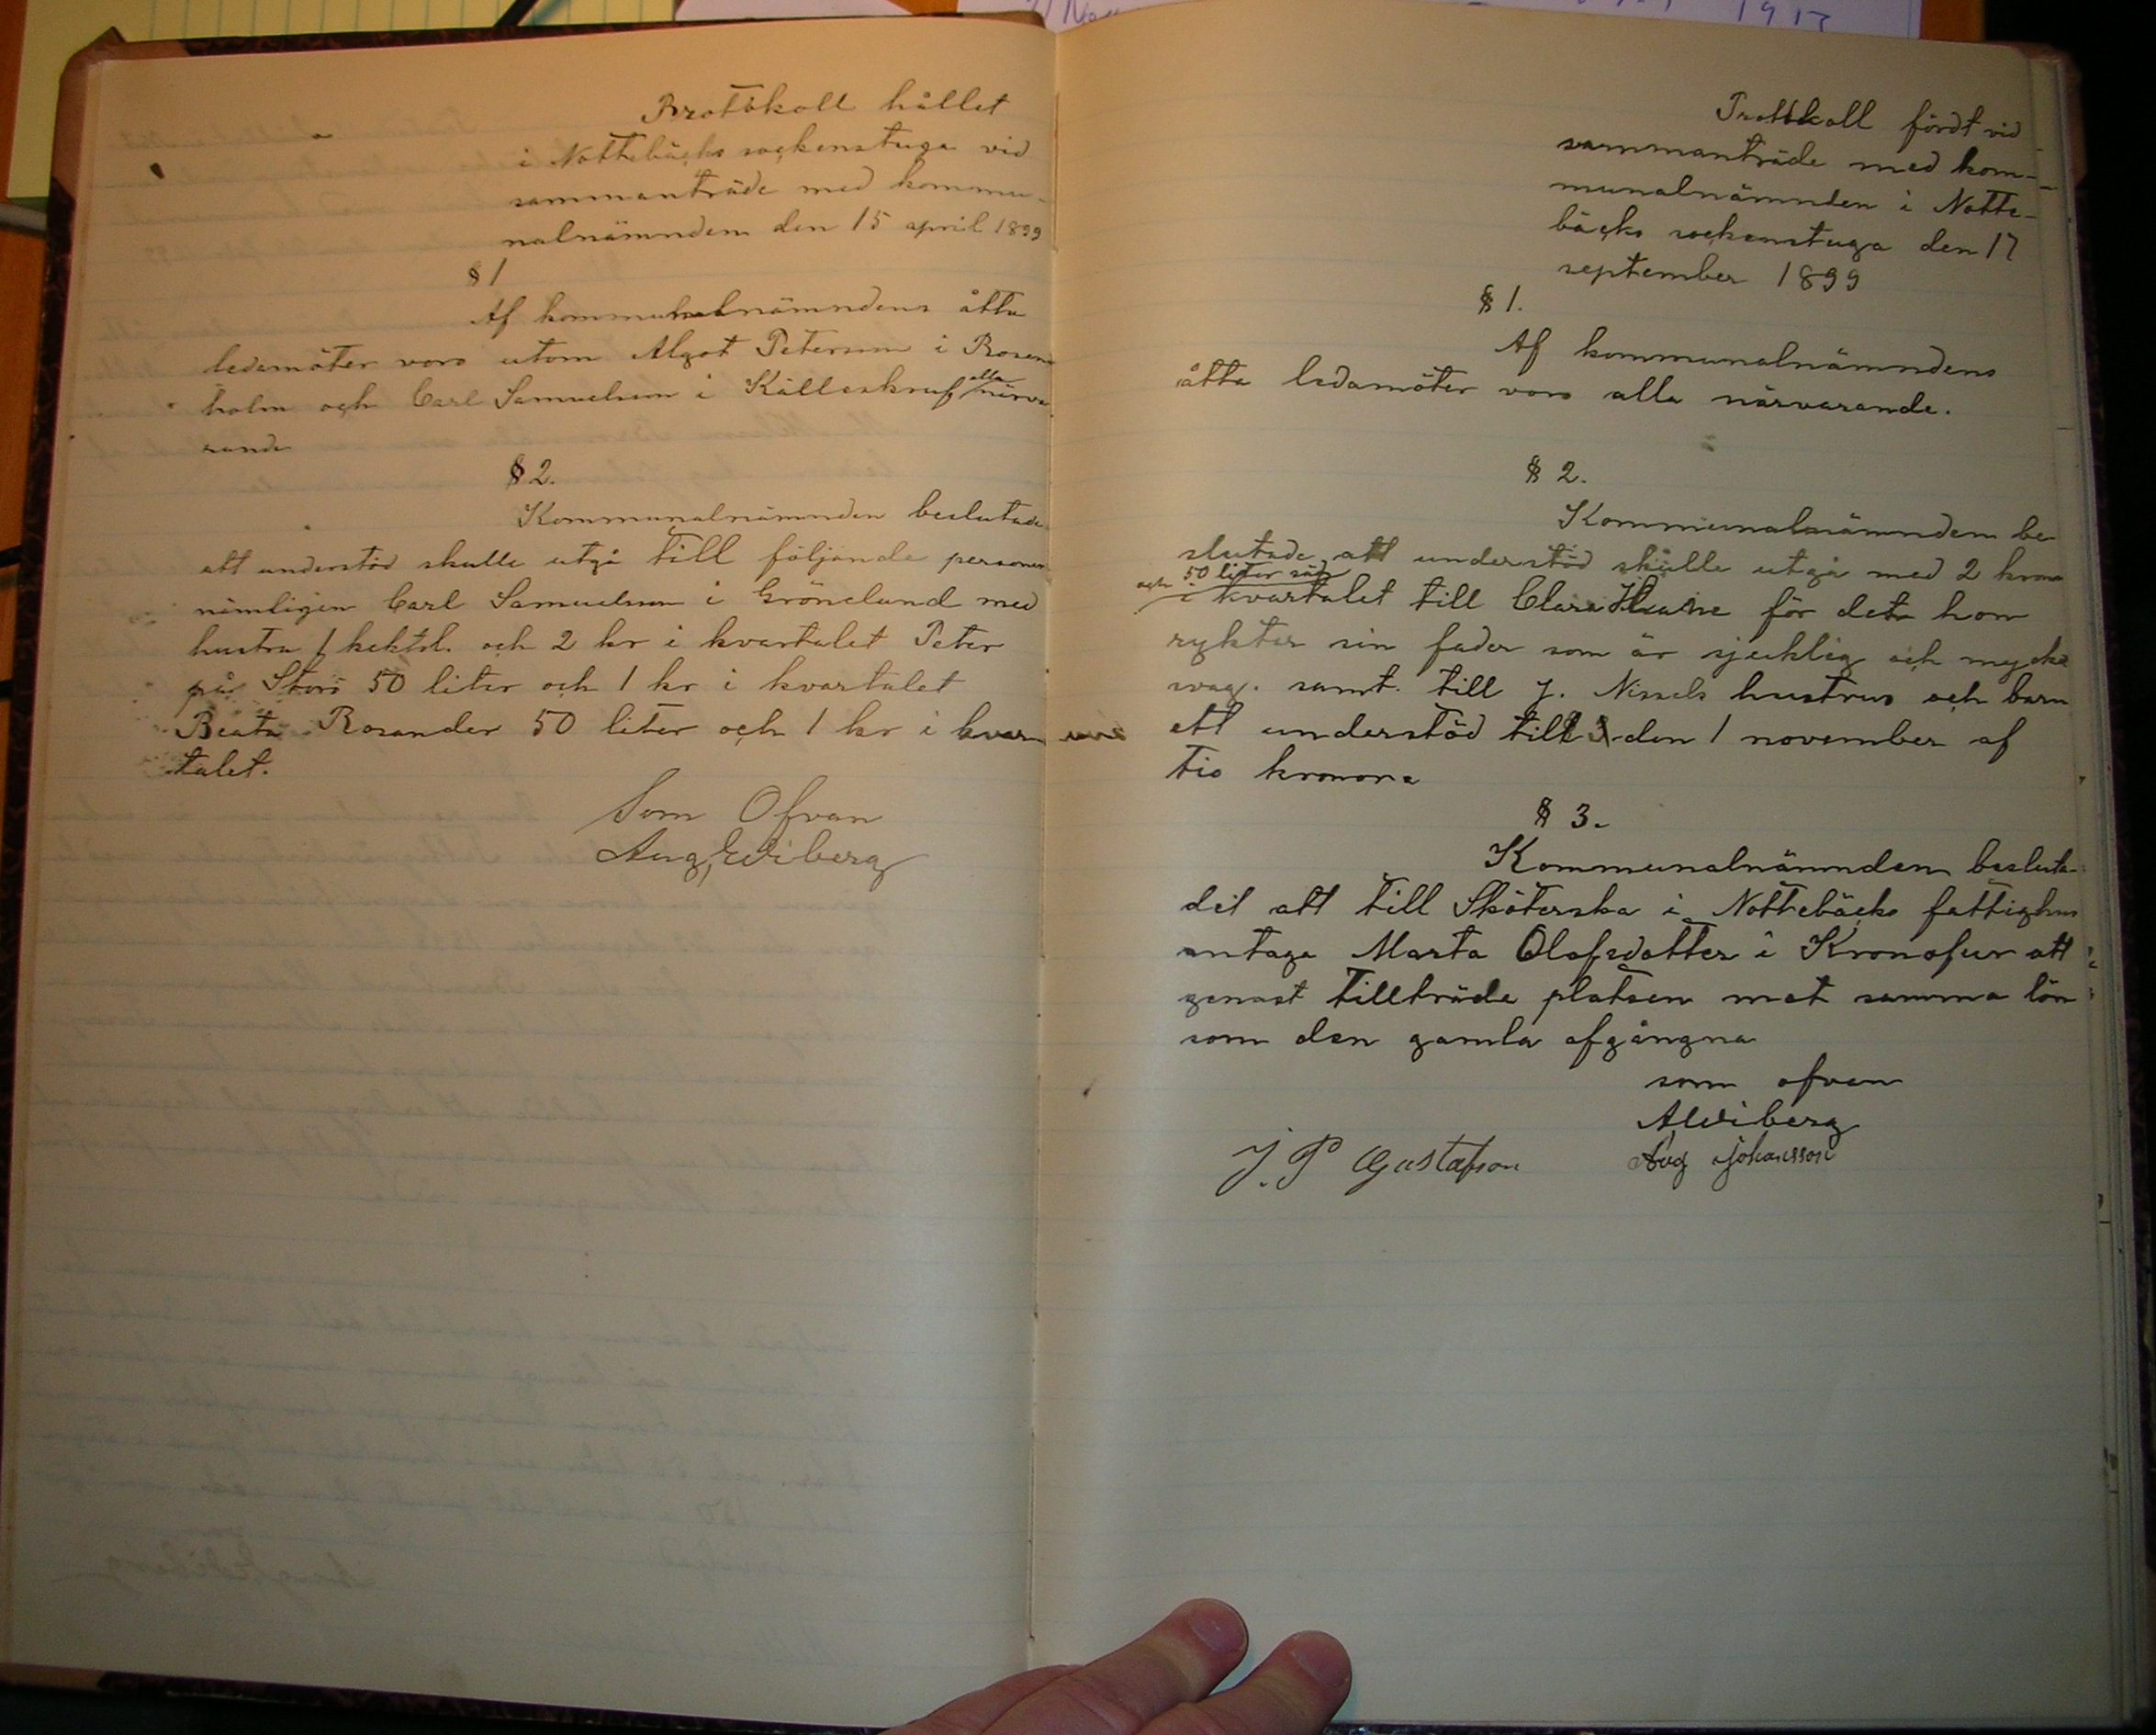 Protokoll hållet
i Nottebäcks sockenstuga vid
sammanträde med kommu-
nalnämnden den 15 april 1899
§ 1
Af kommunalnämndens åtta
ledamöter voro utom Algot Peterson i Rosen
holm och Carl Samuelson i Källeskruf alla närva
rande
§ 2.
Kommunalnämnden beslutade
att understöd skulle utgå till följande personer
nämligen Carl Samuelson i Grönelund med
hustru 1 hektol. och 2 kr i kvartalet Peter
på Storö 50 liter och 1 kr i kvartalet
Beata Rosander 50 liter och 1 kr i kvar
talet.
Som Ofvan
Aug, Wiberg
1913
Protokoll fördt vid
sammanträde med kom-
munalnämnden i Notte-
bäcks sockenstuga den 17
september 1899
§ 1.
Af kommunalnämndens
åtta ledamöter voro alla närvarande.
§ 2.
Kommunalnämnden be
slutade att understöd skulle utgå med 2 krona
och 50 liter säd
i kvartalet till Clara för det hon
rykter sin fader som är sjeklig och mycke
svag. samt. till J. Nissels hustrus och barn
ett understöd till den 1 november af
tio kronor
§ 3.
Kommunalnämnden besluta-
det att till Sköterska i Nottebäcks fattighus
antaga Marta Olofsdotter i Kronofur att
genast tillträde platsen mot samma lön
som den gamla afgångna
som ofvan
AWiberg
J. P Gustafson Aug Johansson